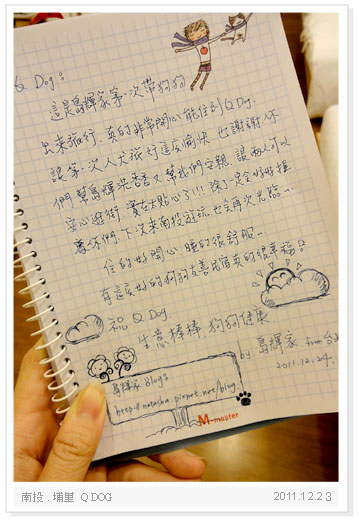 Q Dog:
這是島輝家第一次帶狗狗
出來旅行,真的非常開心能住到Q Dog.
讓第一次人犬旅行這麼愉快,也謝謝你
們幫島輝洗香香又幫我們安親,讓兩人可以
安心逛街,實在太貼心了!!! 我一定會好好推
薦你們,下次來南投遊玩也會再次光臨...
住的好開心,睡的很舒服~
有這麼好的狗狗友善民宿真的很幸福!
祝 Q Dog
生意棒棒 狗狗健康
by 島輝家 from 台北
2011.12.24.
島輝家 Blog:
http://natasha.pixnet.net/blog
M-master
南投.埔里 Q DOG
2011.12.23